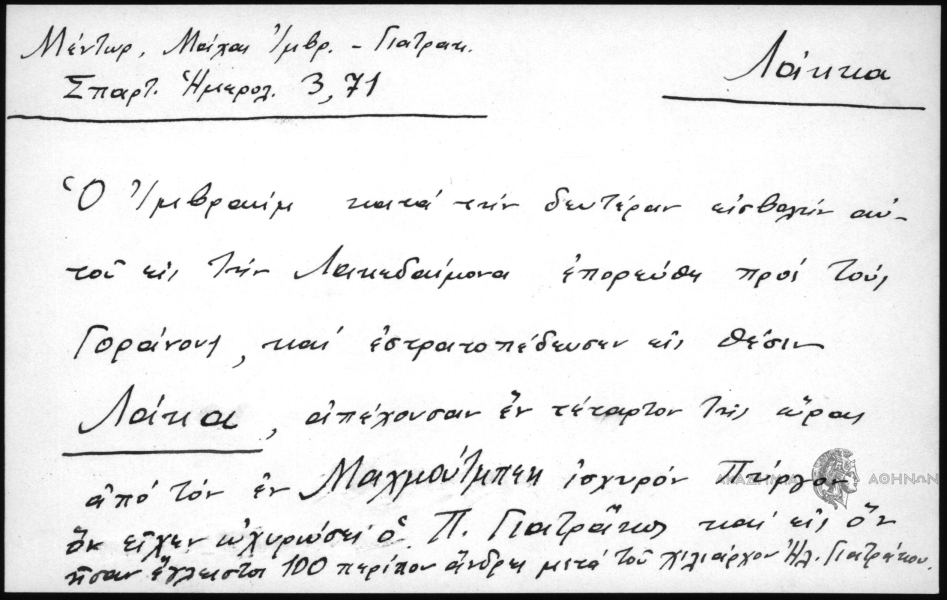 Μέντωρ, Μάχαι Ἰμβρ. - Γιατρακ.
Σπαρτ. Ἡμερολ. 3, 71
Λάκκα
Ὁ Ἰμβρακίμ κατά τήν δευτέραν εἰσβολήν αὐ-
τοῦ εἰς τήν Λακεδαίμονα ἐπορεύθη πρός τούς
Γοράνους, καί ἐστρατοπέδευσεν εἰς θέσιν
Λάκα, ἀπέχουσαν ἕν τέταρτον τῆς ὥρας
ἀπό τόν ἐν Μαχμούτμπεη ἰσχυρόν Πύργον
ὅν εἶχεν ὀχυρώσει ὁ Π. Γιατρᾶκος καί εἰς ὅν
ἦσαν ἔγκλειστοι 100 περίπου ἄνδρες μετά τοῦ χιλιάρχου Ἠλ. Γιατράκου.
ΑΘΗΝΩΝ